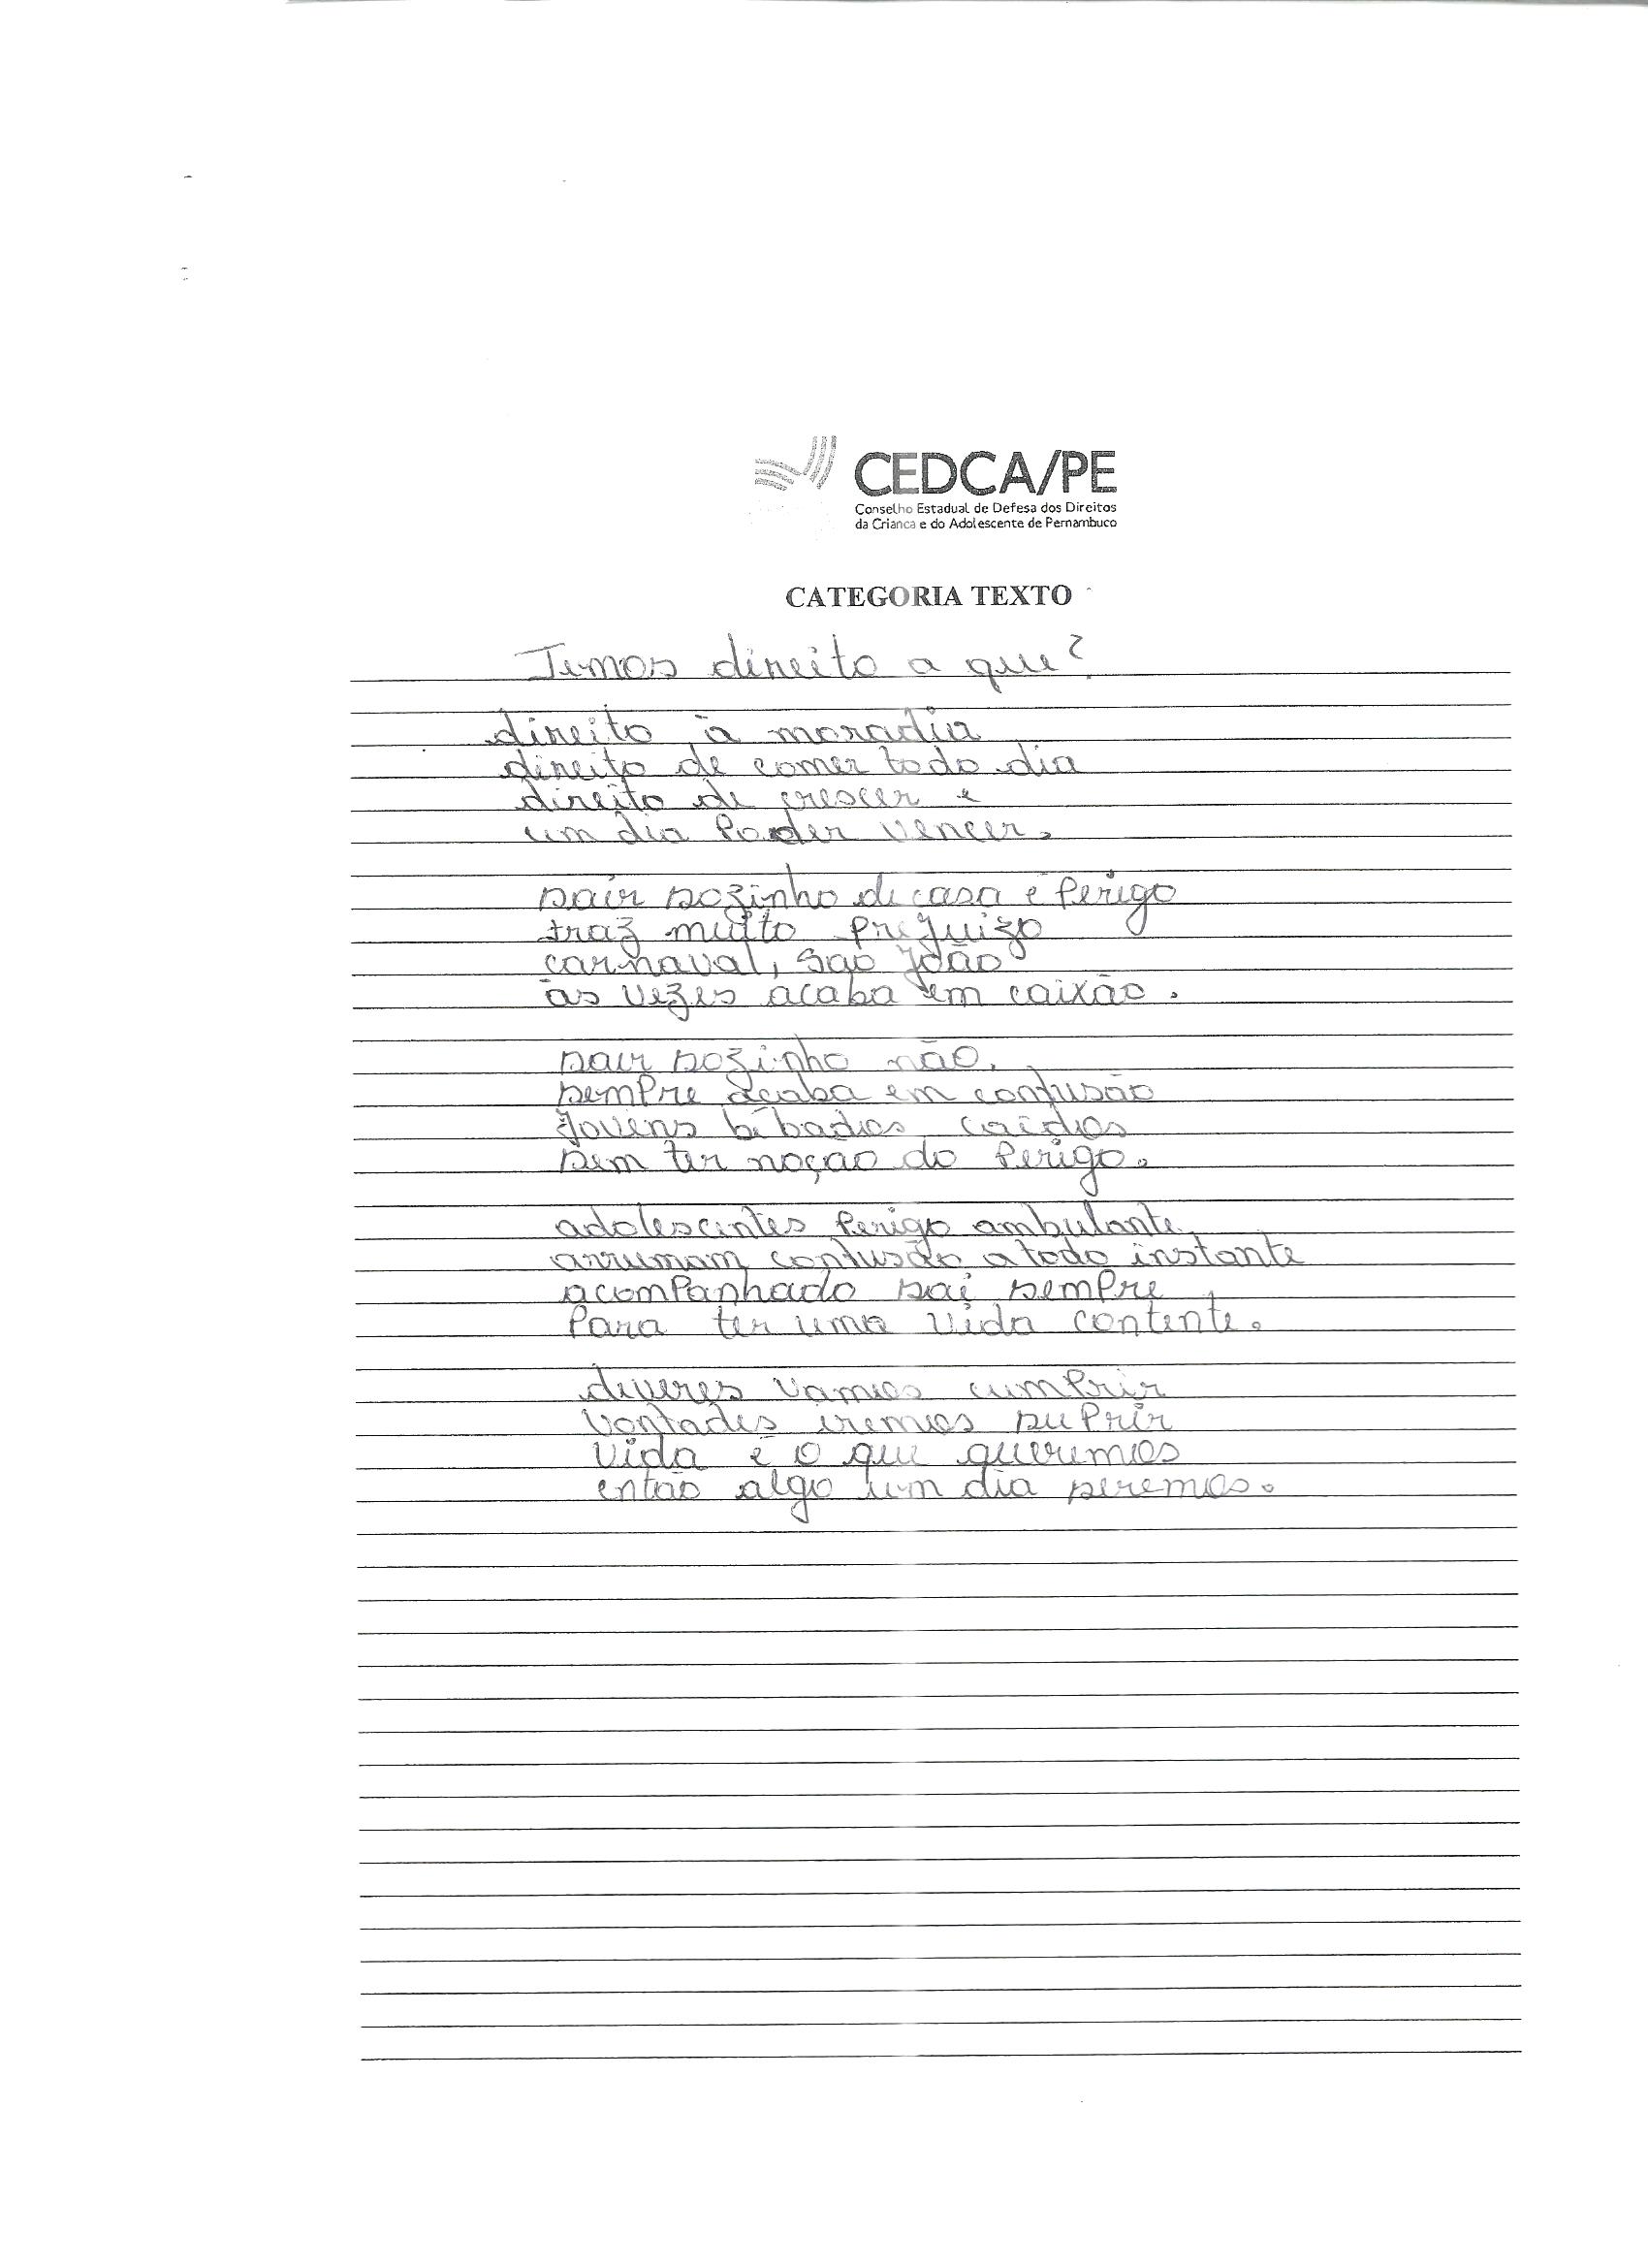 CEDCA/PE
Conselho Estadual de Defesa dos Direitos
da Criança e do Adolescente de Pernambuco
CATEGORIA TEXTO
Temos direito a que?
direito à moradia
direito de comer todo dia
direito de crescer e
um dia Poder vencer.
sair sozinho de casa é Perigo
traz muito PreJuizo
carnaval, São João
às vezes acaba em caixão.
sair sozinho não,
semPre acaba em confusão
Jovens bêbados, caídos
sem ter noção do Perigo.
adolescentes Perigo ambulante
arrumam confusão a todo instante
acomPanhado sai semPre
Para ter uma vida contente.
deveres vamos cumPrir
vontades iremos suPrir
vida é o que queremos
então algo um dia seremos.